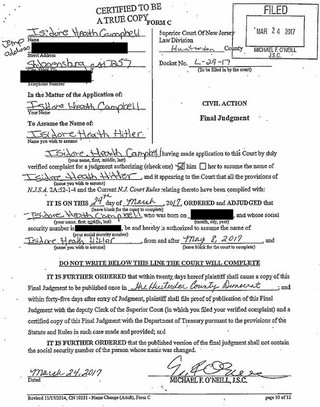 CERTIFIED TO BE
A TRUE COPY
FORM C
FILED
MAR 24 2017
MICHAEL F. O'NEILL
J.S.C.
Isidore Heath Campbell
Name
Temp address
Street Address
Shippensburg, PA 17257
Telephone Number
Superior Court Of New Jersey
Law Division
Hunterdon County
Docket No. L-29-17
(To be filled in by the court)
In the Matter of the Application of:
Isidore Heath Campbell
Your Name
To Assume the Name of:
Isidore Heath Hitler
Name you wish to assume
CIVIL ACTION
Final Judgment
Isidore Heath Campbell having made application to this Court by duly
(your name, first, middle, last)
verified complaint for a judgment authorizing (check one) him her to assume the name of
Isidore Heath Hitler, and it appearing to the Court that all the provisions of
(name you wish to assume)
N.J.S.A. 2A:52-1-4 and the Current N.J. Court Rules relating thereto have been complied with:
IT IS ON THIS 24th day of March 2017, ORDERED and ADJUDGED that
(leave blank for the court to complete)
Isidore Heath Campbell, who was born on and whose social
(your name, first, middle, last) (month, day, year)
security number is , be and hereby is authorized to assume the name of
(your social security number)
Isidore Heath Hitler from and after May 8, 2017 and
(name you wish to assume) (leave blank for the court to complete)
DO NOT WRITE BELOW THIS LINE THE COURT WILL COMPLETE
IT IS FURTHER ORDERED that within twenty days hereof plaintiff shall cause a copy of this
Final Judgment to be published once in the Hunterdon County Democrat; and
within forty-five days after entry of Judgment, plaintiff shall file proof of publication of this Final
Judgment with the deputy Clerk of the Superior Court (in which you filed your verified complaint) and a
certified copy of this Final Judgment with the Department of Treasury pursuant to the provisions of the
Statute and Rules in such case made and provided; and
IT IS FURTHER ORDERED that the published version of the final judgment shall not
contain the social security number of the person whose name was changed.
March 24, 2017
Dated
MICHAEL F. O'NEILL, J.S.C.
Revised 11/17/2014, CN 10551 - Name Change (Adult), Form C
page 10 of 12